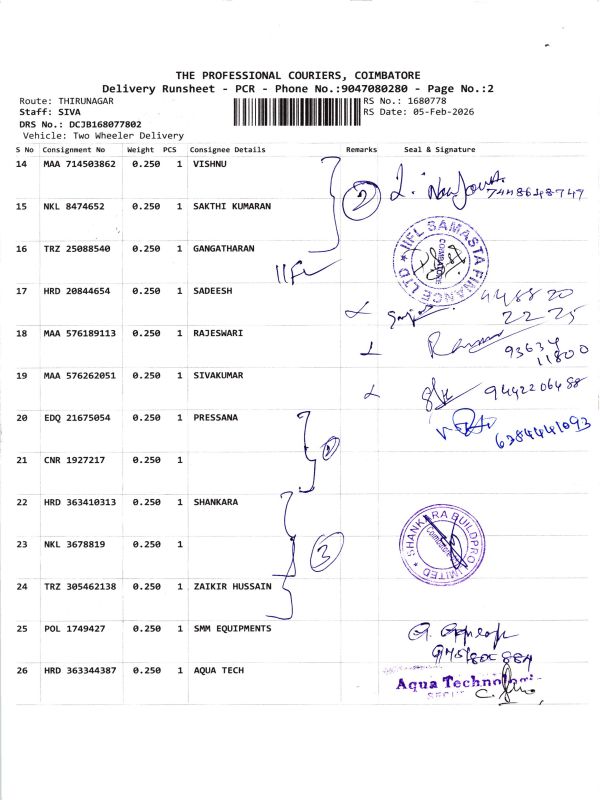 THE PROFESSIONAL COURIERS, COIMBATORE
Delivery Runsheet - PCR - Phone No.:9047080280 - Page No.:2
Route: THIRUNAGAR RS No.: 1680778
Staff: SIVA RS Date: 05-Feb-2026
DRS No.: DCJB168077802
Vehicle: Two Wheeler Delivery
S No Consignment No Weight PCS Consignee Details Remarks Seal & Signature
14 MAA 714503862 0.250 1 VISHNU
2 7448648747
15 NKL 8474652 0.250 1 SAKTHI KUMARAN
16 TRZ 25088540 0.250 1 GANGATHARAN
IIFL
IIFL SAMASTA FINANCE LTD
COIMBATORE
17 HRD 20844654 0.250 1 SADEESH
22 25
18 MAA 576189113 0.250 1 RAJESWARI
93634
11800
19 MAA 576262051 0.250 1 SIVAKUMAR
9442206488
20 EDQ 21675054 0.250 1 PRESSANA
6384441093
21 CNR 1927217 0.250 1
22 HRD 363410313 0.250 1 SHANKARA
23 NKL 3678819 0.250 1
3
SHANKARA BUILDPRO LIMITED
Coimbatore
24 TRZ 305462138 0.250 1 ZAIKIR HUSSAIN
25 POL 1749427 0.250 1 SMM EQUIPMENTS
26 HRD 363344387 0.250 1 AQUA TECH
Aqua Technologi